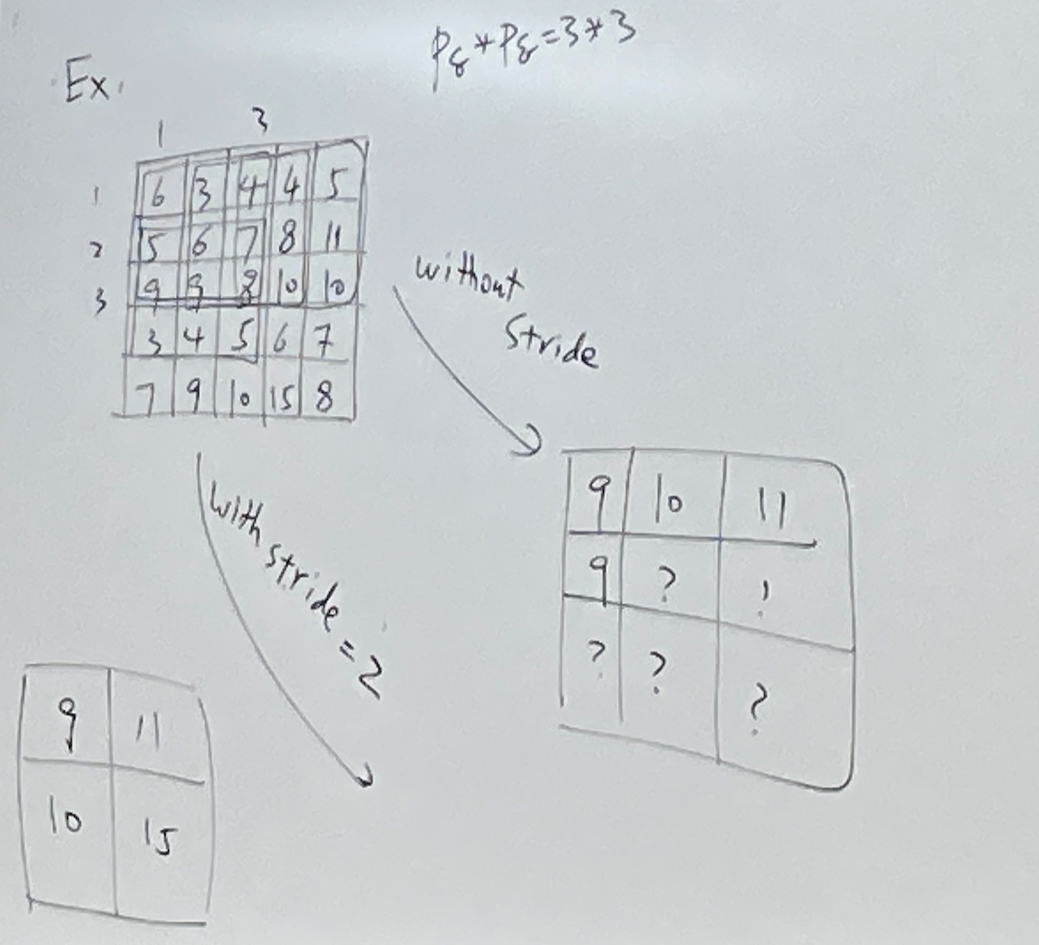 Ex.
1 3
1 6 3 4 4 5
2 5 6 7 8 11
3 9 9 8 10 10
3 4 5 6 7
7 9 10 15 8
without
Stride
9 10 11
9 ? !
? ? ?
with
stride = 2
9 11
10 15